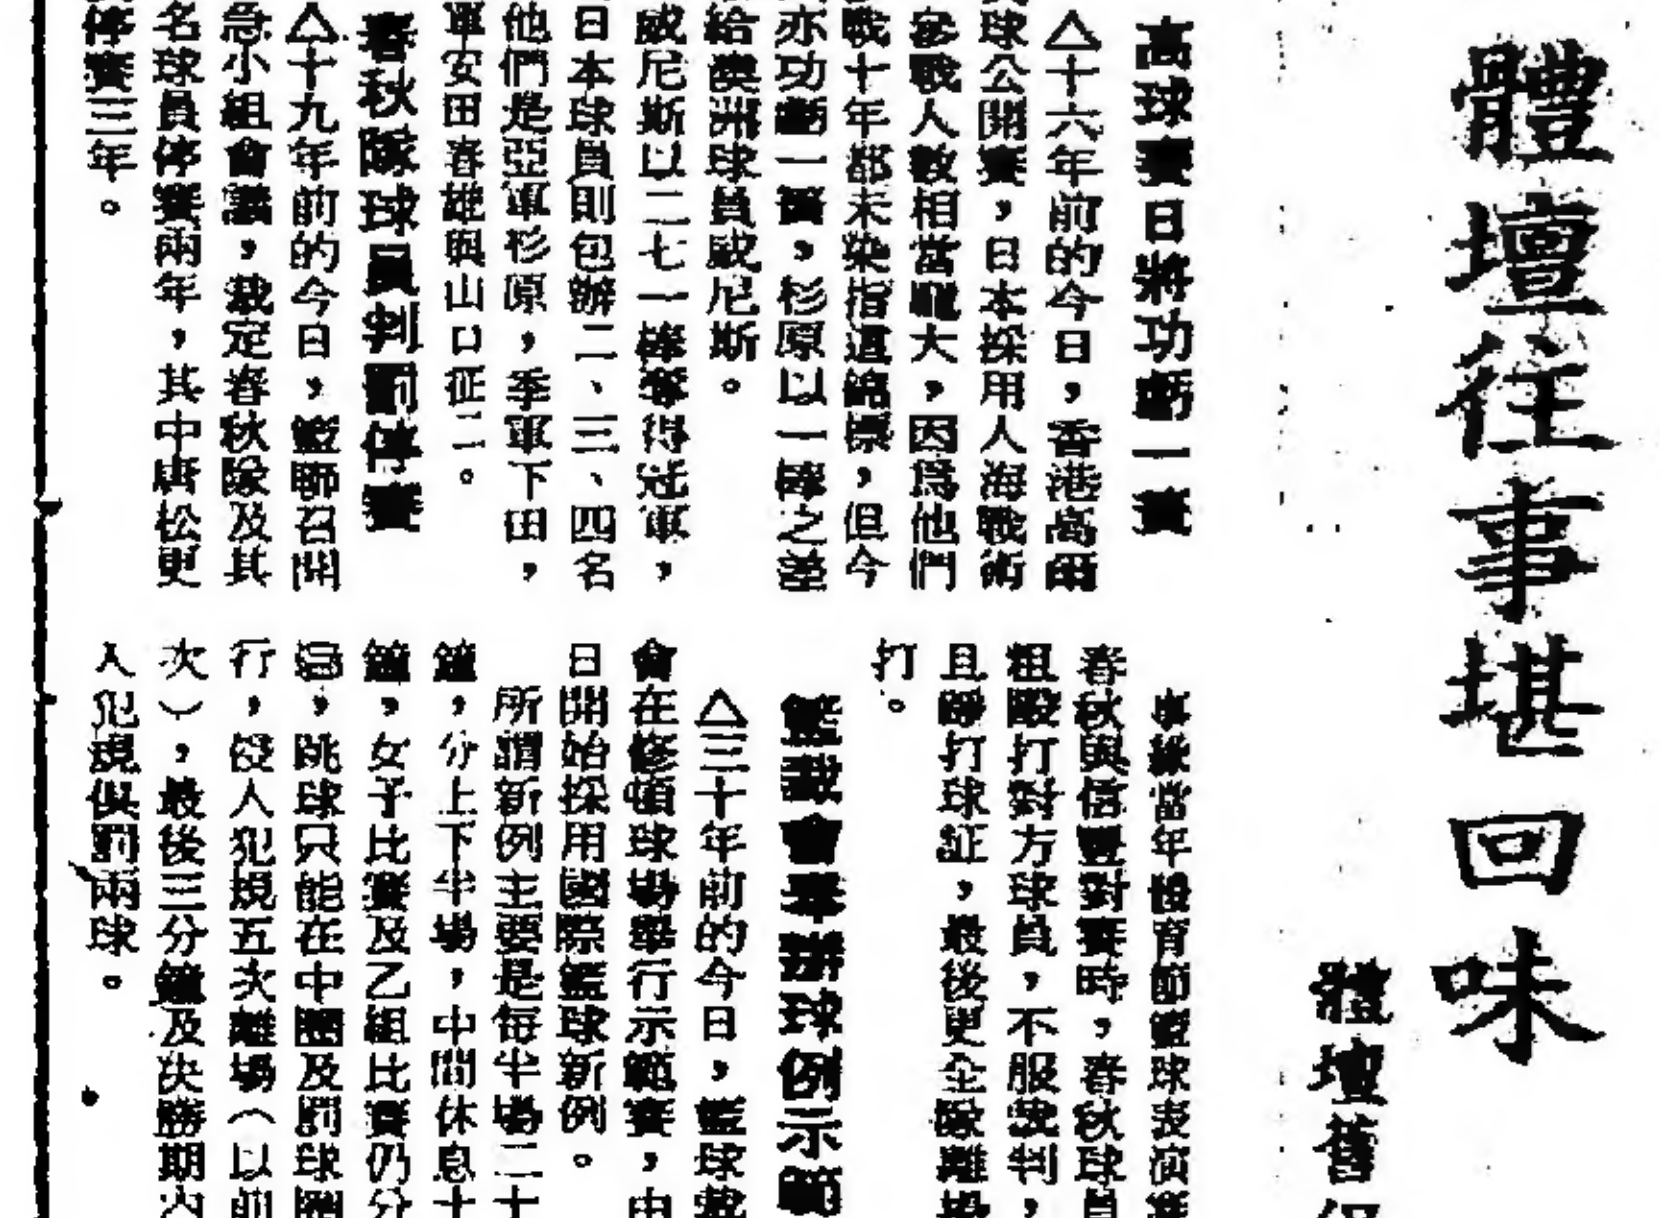 體壇往事堪回味
體壇舊
高球賽日將功虧一簣
△十六年前的今日，香港高爾
球公開賽，日本採用人海戰術
參戰人數相當龐大，因為他們
戰十年都未染指這錦標，但今
亦功虧一簣，杉原以一棒之差
給澳洲球員威尼斯。
威尼斯以二七一棒奪得冠軍，
日本球員則包辦二、三、四名
他們是亞軍杉原，季軍下田，
軍安田春雄與山口征二。
春秋隊球員判罰停賽
△十九年前的今日，籃聯召開
急小組會議，裁定春秋隊及其
名球員停賽兩年，其中唐松更
停賽三年。
事緣當年體育節籃球表演
春秋與信豐對賽時，春秋球員
粗毆打對方球員，不服裁判，
且毆打球証，最後更全隊離場
打。
籃裁會舉辦球例示範
△三十年前的今日，籃球裁
會在修頓球場舉行示範賽，由
日開始採用國際籃球新例。
所謂新例主要是每半場二十
鐘，分上下半場，中間休息十
鐘，女子比賽及乙組比賽仍分
跳球只能在中圈及罰球圈
行，侵人犯規五次離場（以前
次），最後三分鐘及決勝期內
人犯規俱罰兩球。